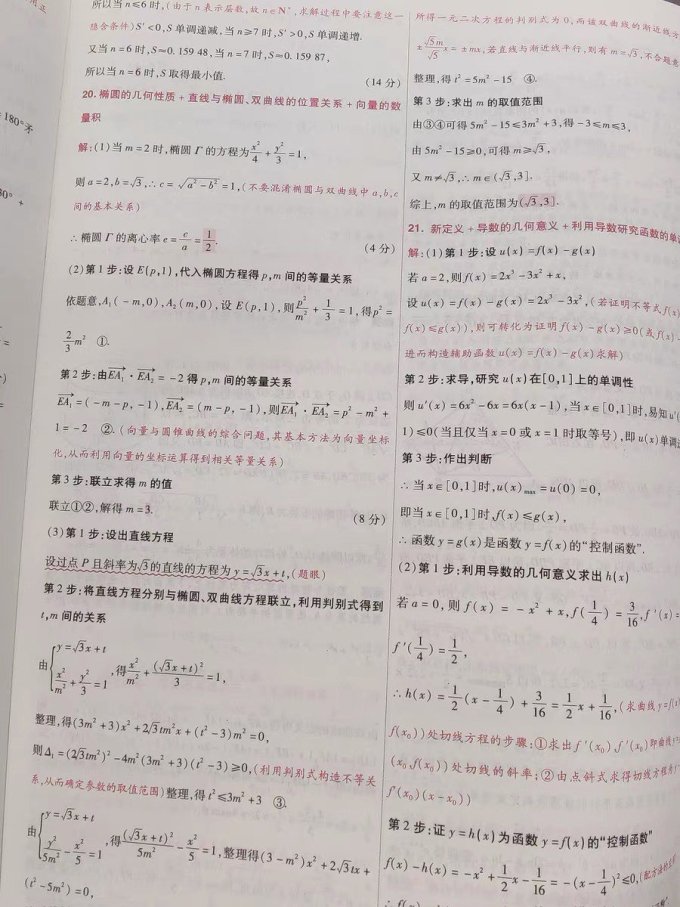 所以当 n≤6 时,(由于 n 表示层数,故 n∈N*,求解过程中要注意这一
隐含条件) S'<0,S 单调递减,当 n≥7 时,S'>0,S 单调递增.
又当 n=6 时,S≈0.159 48,当 n=7 时,S≈0.159 87,
所以当 n=6 时,S 取得最小值. (14 分)
20. 椭圆的几何性质 + 直线与椭圆、双曲线的位置关系 + 向量的数
量积
解:(1)当 m=2 时,椭圆 Γ 的方程为 x²/4+y²/3=1,
则 a=2,b=√3,∴ c=√(a²-b²)=1,(不要混淆椭圆与双曲线中 a,b,c
间的基本关系)
∴ 椭圆 Γ 的离心率 e=c/a=1/2. (4 分)
(2)第 1 步:设 E(p,1),代入椭圆方程得 p,m 间的等量关系
依题意,A₁(-m,0),A₂(m,0),设 E(p,1),则 p²/m²+1/3=1,得 p²=
2/3 m² ①.
第 2 步:由 EA₁→·EA₂→=-2 得 p,m 间的等量关系
EA₁→=(-m-p,-1),EA₂→=(m-p,-1),则 EA₁→·EA₂→=p²-m²+
1=-2 ②.(向量与圆锥曲线的综合问题,其基本方法为向量坐标
化,从而利用向量的坐标运算得到相关等量关系)
第 3 步:联立求得 m 的值
联立①②,解得 m=3. (8 分)
(3)第 1 步:设出直线方程
设过点 P 且斜率为√3的直线的方程为 y=√3x+t,(题眼)
第 2 步:将直线方程分别与椭圆、双曲线方程联立,利用判别式得到
t,m 间的关系
由 { y=√3x+t
x²/m²+y²/3=1 ,得 x²/m²+(√3x+t)²/3=1,
整理,得(3m²+3)x²+2√3tm²x+(t²-3)m²=0,
则 Δ₁=(2√3tm²)²-4m²(3m²+3)(t²-3)≥0,(利用判别式构造不等关
系,从而确定参数的取值范围)整理,得 t²≤3m²+3 ③.
由 { y=√3x+t
y²/5m²-x²/5=1 ,得 (√3x+t)²/5m²-x²/5=1,整理得(3-m²)x²+2√3tx+
(t²-5m²)=0,
所得一元二次方程的判别式为 0,而该双曲线的渐近线
±√5m/√5 x=±mx,若直线与渐近线平行,则有 m=√3,不合题意
整理,得 t²=5m²-15 ④.
第 3 步:求出 m 的取值范围
由③④可得 5m²-15≤3m²+3,得 -3≤m≤3,
由 5m²-15≥0,可得 m≥√3,
又 m≠√3,∴ m∈(√3,3].
综上,m 的取值范围为(√3,3].
21. 新定义 + 导数的几何意义 + 利用导数研究函数的单
解:(1)第 1 步:设 u(x)=f(x)-g(x)
若 a=2,则 f(x)=2x³-3x²+x,
设 u(x)=f(x)-g(x)=2x³-3x²,(若证明不等式 f(x)
f(x)≤g(x)),则可转化为证明 f(x)-g(x)≥0(或 f(x)-
进而构造辅助函数 u(x)=f(x)-g(x)求解)
第 2 步:求导,研究 u(x)在[0,1]上的单调性
则 u'(x)=6x²-6x=6x(x-1),当 x∈[0,1]时,易知 u'(
1)≤0(当且仅当 x=0 或 x=1 时取等号),即 u(x)单调
第 3 步:作出判断
∴ 当 x∈[0,1]时,u(x)max=u(0)=0,
即当 x∈[0,1]时,f(x)≤g(x),
∴ 函数 y=g(x)是函数 y=f(x)的“控制函数”.
(2)第 1 步:利用导数的几何意义求出 h(x)
若 a=0,则 f(x)=-x²+x,f(1/4)=3/16,f'(x)=
f'(1/4)=1/2,
∴ h(x)=1/2(x-1/4)+3/16=1/2x+1/16,(求曲线 y=f(x)
f(x₀))处切线方程的步骤:①求出 f'(x₀),f'(x₀)即曲线
(x₀,f(x₀))处切线的斜率;②由点斜式求得切线方程为
f'(x₀)(x-x₀))
第 2 步:证 y=h(x)为函数 y=f(x)的“控制函数”
f(x)-h(x)=-x²+1/2x-1/16=-(x-1/4)²≤0,(配方法的